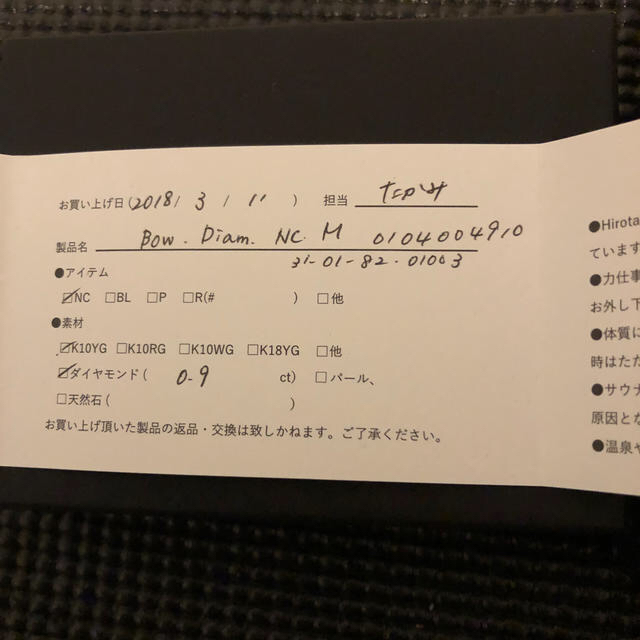 お買い上げ日(2018/ 3 / 11 ) 担当
製品名 Bow. Diam. NC. M 0104004910
31-01-82-01003
●アイテム
☑NC □BL □P □R(# ) □他
●素材
☑K10YG □K10RG □K10WG □K18YG □他
☑ダイヤモンド( 0.9 ct) □パール、
□天然石( )
お買い上げ頂いた製品の返品・交換は致しかねます。ご了承ください。
●Hirota
ています
●力仕事
お外し下
●体質に
時はただ
●サウナ
原因とな
●温泉や